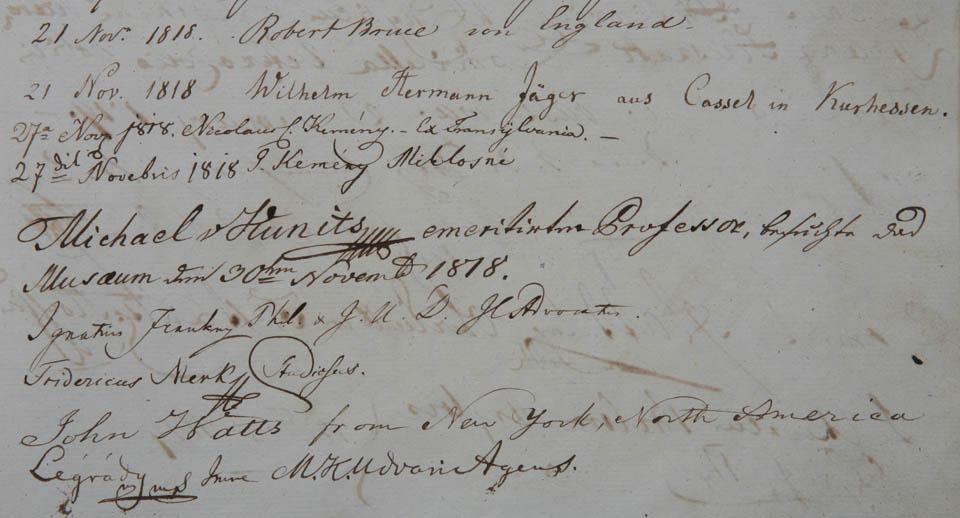 21 Nov. 1818. Robert Bruce von England
21 Nov. 1818 Wilhelm Hermann Jäger aus Cassel in Kurhessen.
27a Nov. 1818. Nicolaus C. Kemény. – Ex Transylvania. –
27dik Novebris 1818 Kemény Miklosné
Michael v Hunits emeritirter Professor, besuchte das
Musaeum den 30ten Novemb 1818.
Ignatius Frankny Phil. & J. U. D. H Advocatus.
Fridericus Merk Studiosus.
John Watts from New York, North America
Légrády Imre M. K. Udvari Agens.